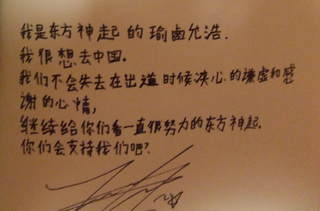 我是东方神起的瑜鹵允浩.
我很想去中国.
我们不会失去在出道时候决心的谦虚和感
谢的心情,
继续给你们看一直很努力的东方神起.
你们会支持我们吧?